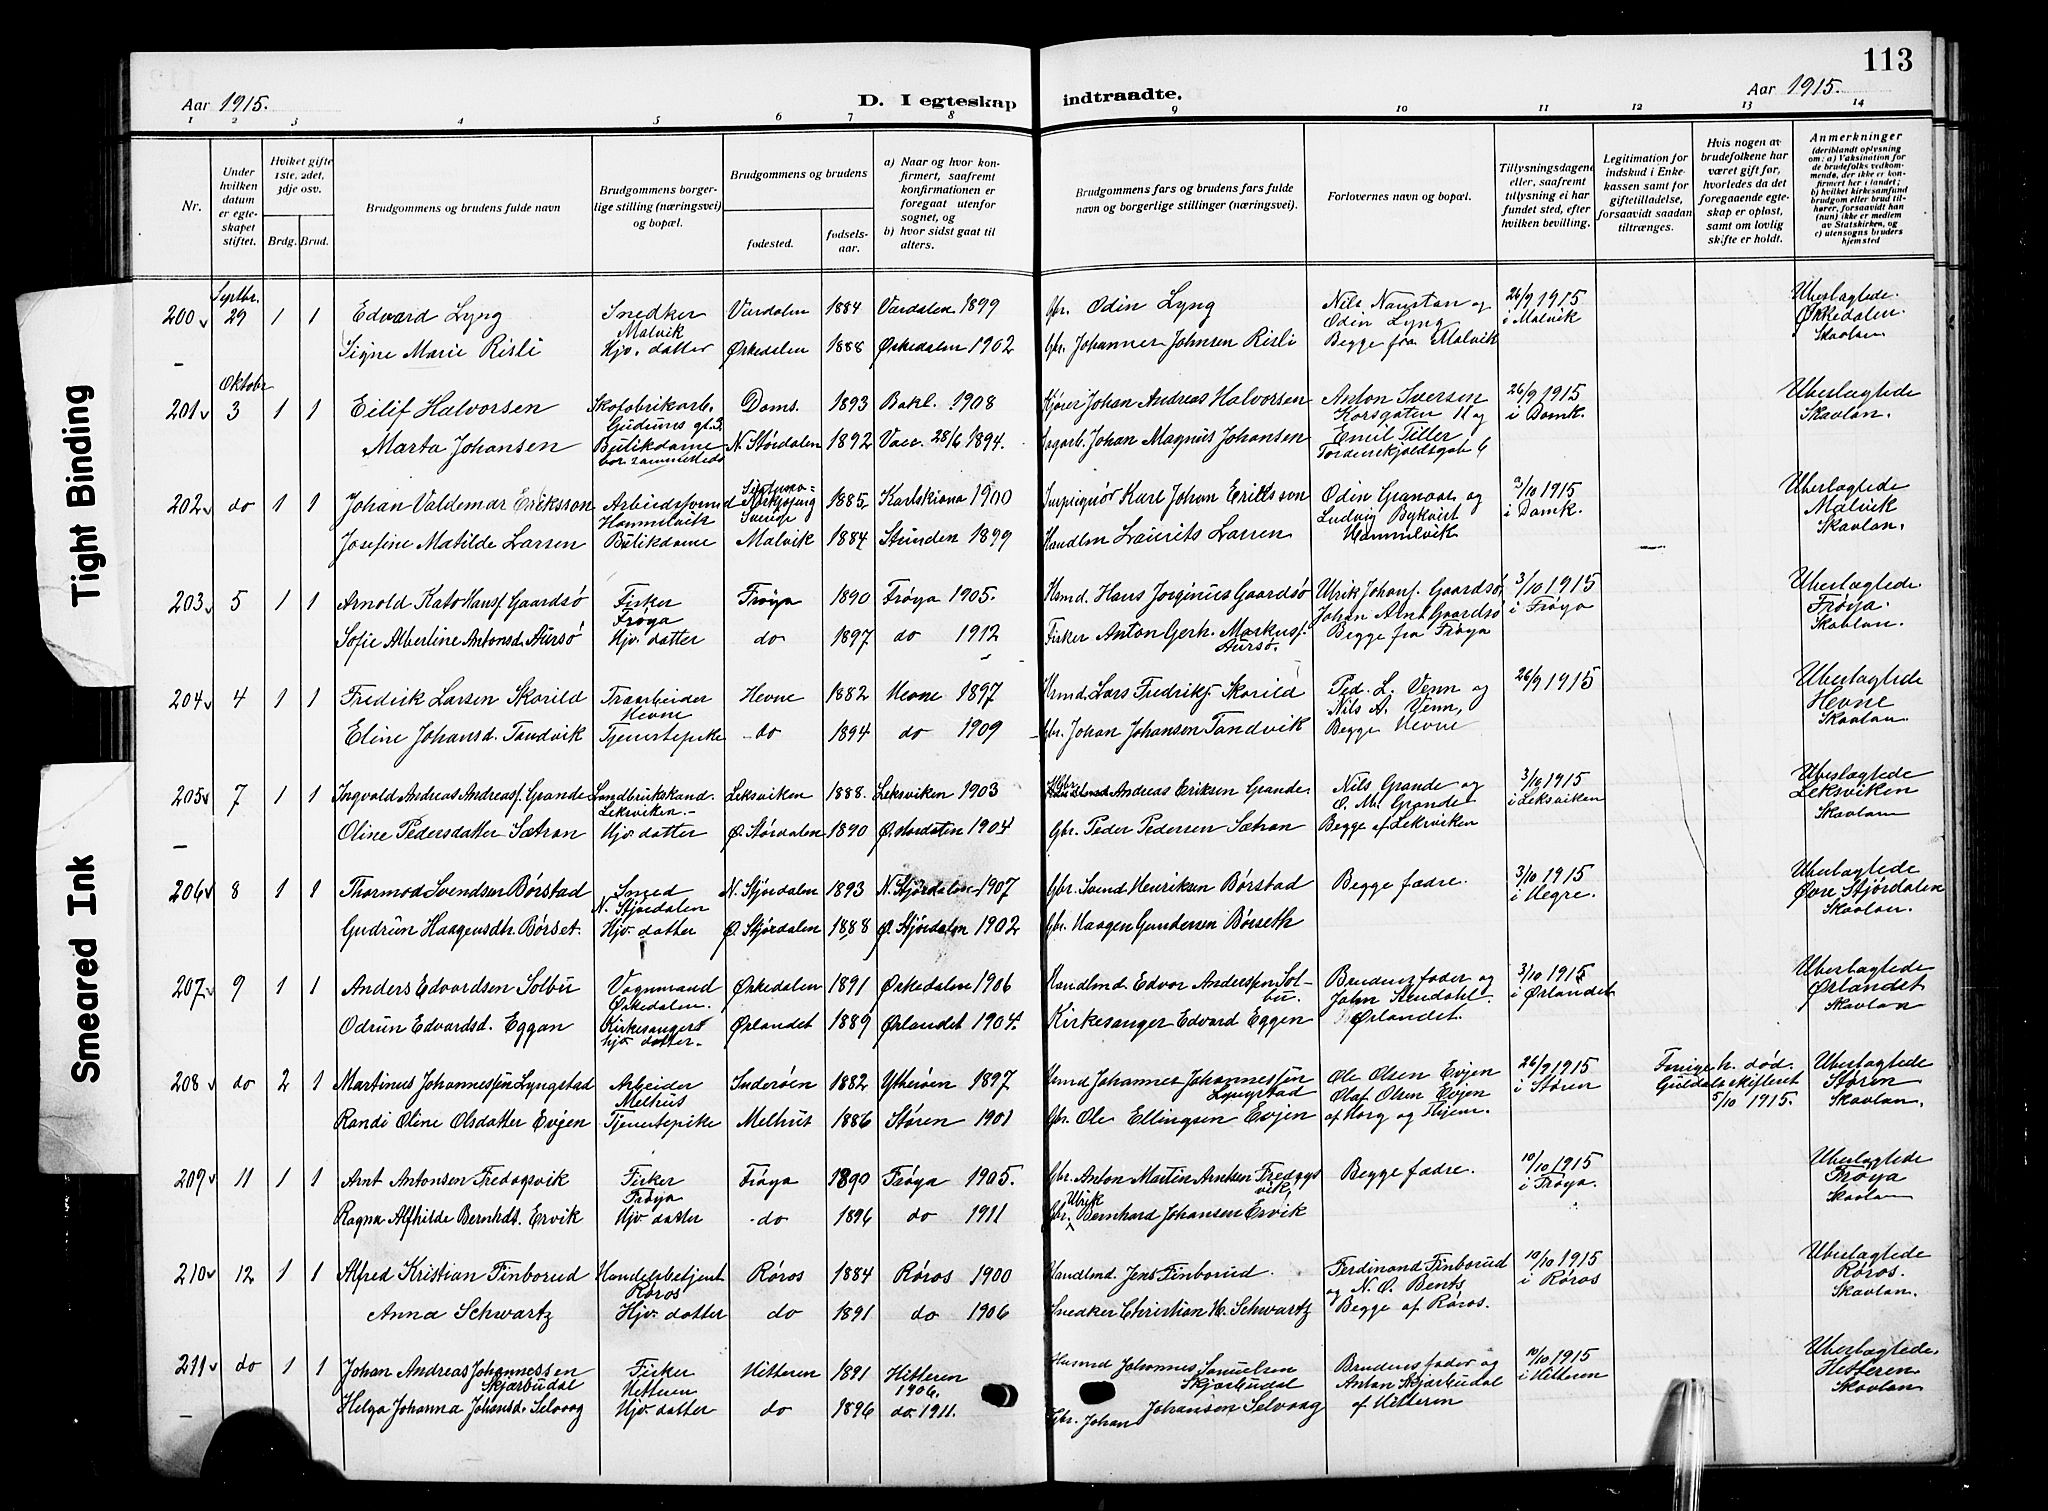 Tight Binding
Smeared Ink
113
Aar 1915.
D. I egteskap
indtraadte.
Aar 1915.
1 2 3 4 5 6 7 8 9 10 11 12 13 14
Nr.
Under hvilken datum er egteskapet stiftet.
Hvilket gifte 1ste, 2det, 3dje osv.
Brdg. Brud.
Brudgommens og brudens fulde navn
Brudgommens borgerlige stilling (næringsvei) og bopæl.
Brudgommens og brudens
fødested.
fødselsaar.
a) Naar og hvor konfirmert, saafremt konfirmationen er foregaat utenfor sognet, og
b) hvor sidst gaat til alters.
Brudgommens fars og brudens fars fulde navn og borgerlige stillinger (næringsvei).
Forlovernes navn og bopæl.
Tillysningsdagene eller, saafremt tillysning ei har fundet sted, efter hvilken bevilling.
Legitimation for indskud i Enkekassen samt for giftetilladelse, forsaavidt saadan tiltrænges.
Hvis nogen av brudefolkene har været gift før, hvorledes da det foregaaende egteskap er opløst, samt om lovlig skifte er holdt.
Anmerkninger
(deriblandt oplysning om: a) Vaksination for de brudefolks vedkommende, der ikke er konfirmert her i landet; b) hvilket kirkesamfund brudgom eller brud tilhører, forsaavidt han (hun) ikke er medlem av Statskirken, og c) utensogns bruders hjemsted
Septbr.
200 29 1 1 Edvard Lyng Snedker Malvik Værdalen 1884 Værdalen 1899 Gbr. Odin Lyng Nils Naustan og Odin Lyng 26/9 1915 i Malvik Ubeslægtede. Ørkedalen. Skavlan.
Signe Marie Risli Hjv. datter Ørkedalen 1888 Ørkedalen 1902 Gbr. Johannes Johnsen Risli Begge fra Malvik
Oktobr
201 3 1 1 Eilif Halvorsen Skofabrikarb. Gudruns gt. 3. Doms. 1893 Bakl. 1908 Kjører Johan Andreas Halvorsen Anton Iversen Korsgaten 11 og 26/9 1915 i Domk. Ubeslægtede Skavlan.
Marta Johansen Butikdame bor sammesteds N. Størdalen 1892 Vacc. 28/6 1894. Sagarb. Johan Magnus Johansen Emil Tiller Tordenskjoldsgate 6
202 do 1 1 Johan Valdemar Eriksson Arbeidsformand Hommelvik Norkøping Sverige 1885 Karlskrona 1900 Karl Johan Eriksson Odin Granaas og Ludvig Bykvist 3/10 1915 i Domk. Ubeslægtede Malvik Skavlan.
Josefine Matilde Larsen Butikdame Malvik 1884 Strinden 1899 Handlm Laurits Larsen Hommelvik
203 5 1 1 Arnold Kato Hansf. Gaardsø Fisker Frøya Frøya 1890 Frøya 1905. Husmd. Hans Jørginus Gaardsø Ulrik Johans. Gaardsø, Johan Arnt Gaardsø 3/10 1915 i Frøya Ubeslægtede. Frøya. Skavlan.
Sofie Albertine Antonsd. Aursø Hjv. datter do 1897 do 1912 Fisker Anton Gerh. Markusf. Aursø. Begge fra Frøya
204 4 1 1 Fredrik Larsen Skorild Træarbeider Hevne Hevne 1882 Hevne 1897 Husmd. Lars Fredriksf. Skorild Ped. L. Venn og Nils A. Venn, 26/9 1915 Ubeslægtede Hevne Skavlan
Eline Johansd. Tandvik Tjenestepike do 1894 do 1909 Gbr. Johan Johansen Tandvik Begge Hevne
205 7 1 1 Ingvald Andreas Andreasf. Grande Landbrukskand. Leksviken. Leksviken 1888. Leksviken 1903 Gbr. Andreas Eriksen Grande. Nils Grande og O. M. Grande 3/10 1915 i Leksviken Ubeslægtede Leksviken Skavlan
Oline Pedersdatter Sætran Hjv. datter Ø. Størdalen 1890 Ø. Størdalen 1904 Gbr. Peder Pedersen Sætran Begge af Leksviken
206 8 1 1 Thormod Svendsen Børstad Smed N. Stjørdalen N. Stjørdalen 1893 N. Stjørdalen 1907 Gbr. Svend Henriksen Børstad Begge fædre. 3/10 1915 i Hegre. Ubeslægtede Øvre Stjørdalen Skavlan.
Gudrun Haagensdtr. Børset. Hjv. datter Ø. Stjørdalen 1888 Ø. Stjørdalen 1902 Gbr. Haagen Gundersen Børseth
207 9 1 1 Anders Edvardsen Solbu Vognmand Ørkedalen. Ørkedalen 1891 Ørkedalen 1906 Handlmd. Edvor Anderssen Solbu. Brudens fader og John Stendahl. 3/10 1915 i Ørlandet Ubeslægtede Ørlandet Skavlan
Odrun Edvardsd. Eggan Kirkesangers hjv. datter. Ørlandet 1889 Ørlandet 1904. Kirkesanger Edvard Eggen Ørlandet.
208 do 2 1 Martinus Johannessen Lyngstad Arbeider Melhus Inderøen 1882 Ytterøen 1897 Husmd Johannes Johannessen Lyngstad Ole Olsen Evjen Olaf Olsen Evjen 26/9 1915 i Støren Forrige h. død. Guldals skifteret 5/10 1915. Ubeslægtede Støren Skavlan.
Randi Oline Olsdatter Evjen Tjenestepike Melhus 1886 Støren 1901 Gbr. Ole Ellingsen Evjen af Horg og
209 11 1 1 Arnt Antonsen Fredagsvik Fisker Frøya Frøya 1890 Frøya 1905. Gbr. Anton Martin Arntsen Fredagsvik, Begge fædre. 10/10 1915 i Frøya. Ubeslægtede Frøya Skavlan
Ragna Alfhilde Bernhdt. Ervik Hjv. datter do 1896 do 1911 Gbr. Ulrik Bernhard Johansen Ervik
210 12 1 1 Alfred Kristian Finborud Handelsbetjent Røros Røros 1884 Røros 1900 Handlmd. Jens Finborud. Ferdinand Finborud og N. O. Bents 10/10 1915 i Røros Ubeslægtede Røros. Skavlan.
Anna Schwartz Hjv. datter do 1891 do 1906 Snedker Christian H. Schwartz Begge af Røros.
211 do 1 1 Johan Andreas Johannessen Skjærbudal Fisker Hitteren Hitteren 1891 Hitteren 1906. Husmd Johannes Samuelsen Skjærbudal Brudens fader og Anton Skjærbudal 10/10 1915 i Hitteren Ubeslægtede. Hitteren. Skavlan
Helga Johanna Johansd. Selvaag Hjv. datter do 1896 do. 1911. Gbr. Johan Johansen Selvaag af Hitteren